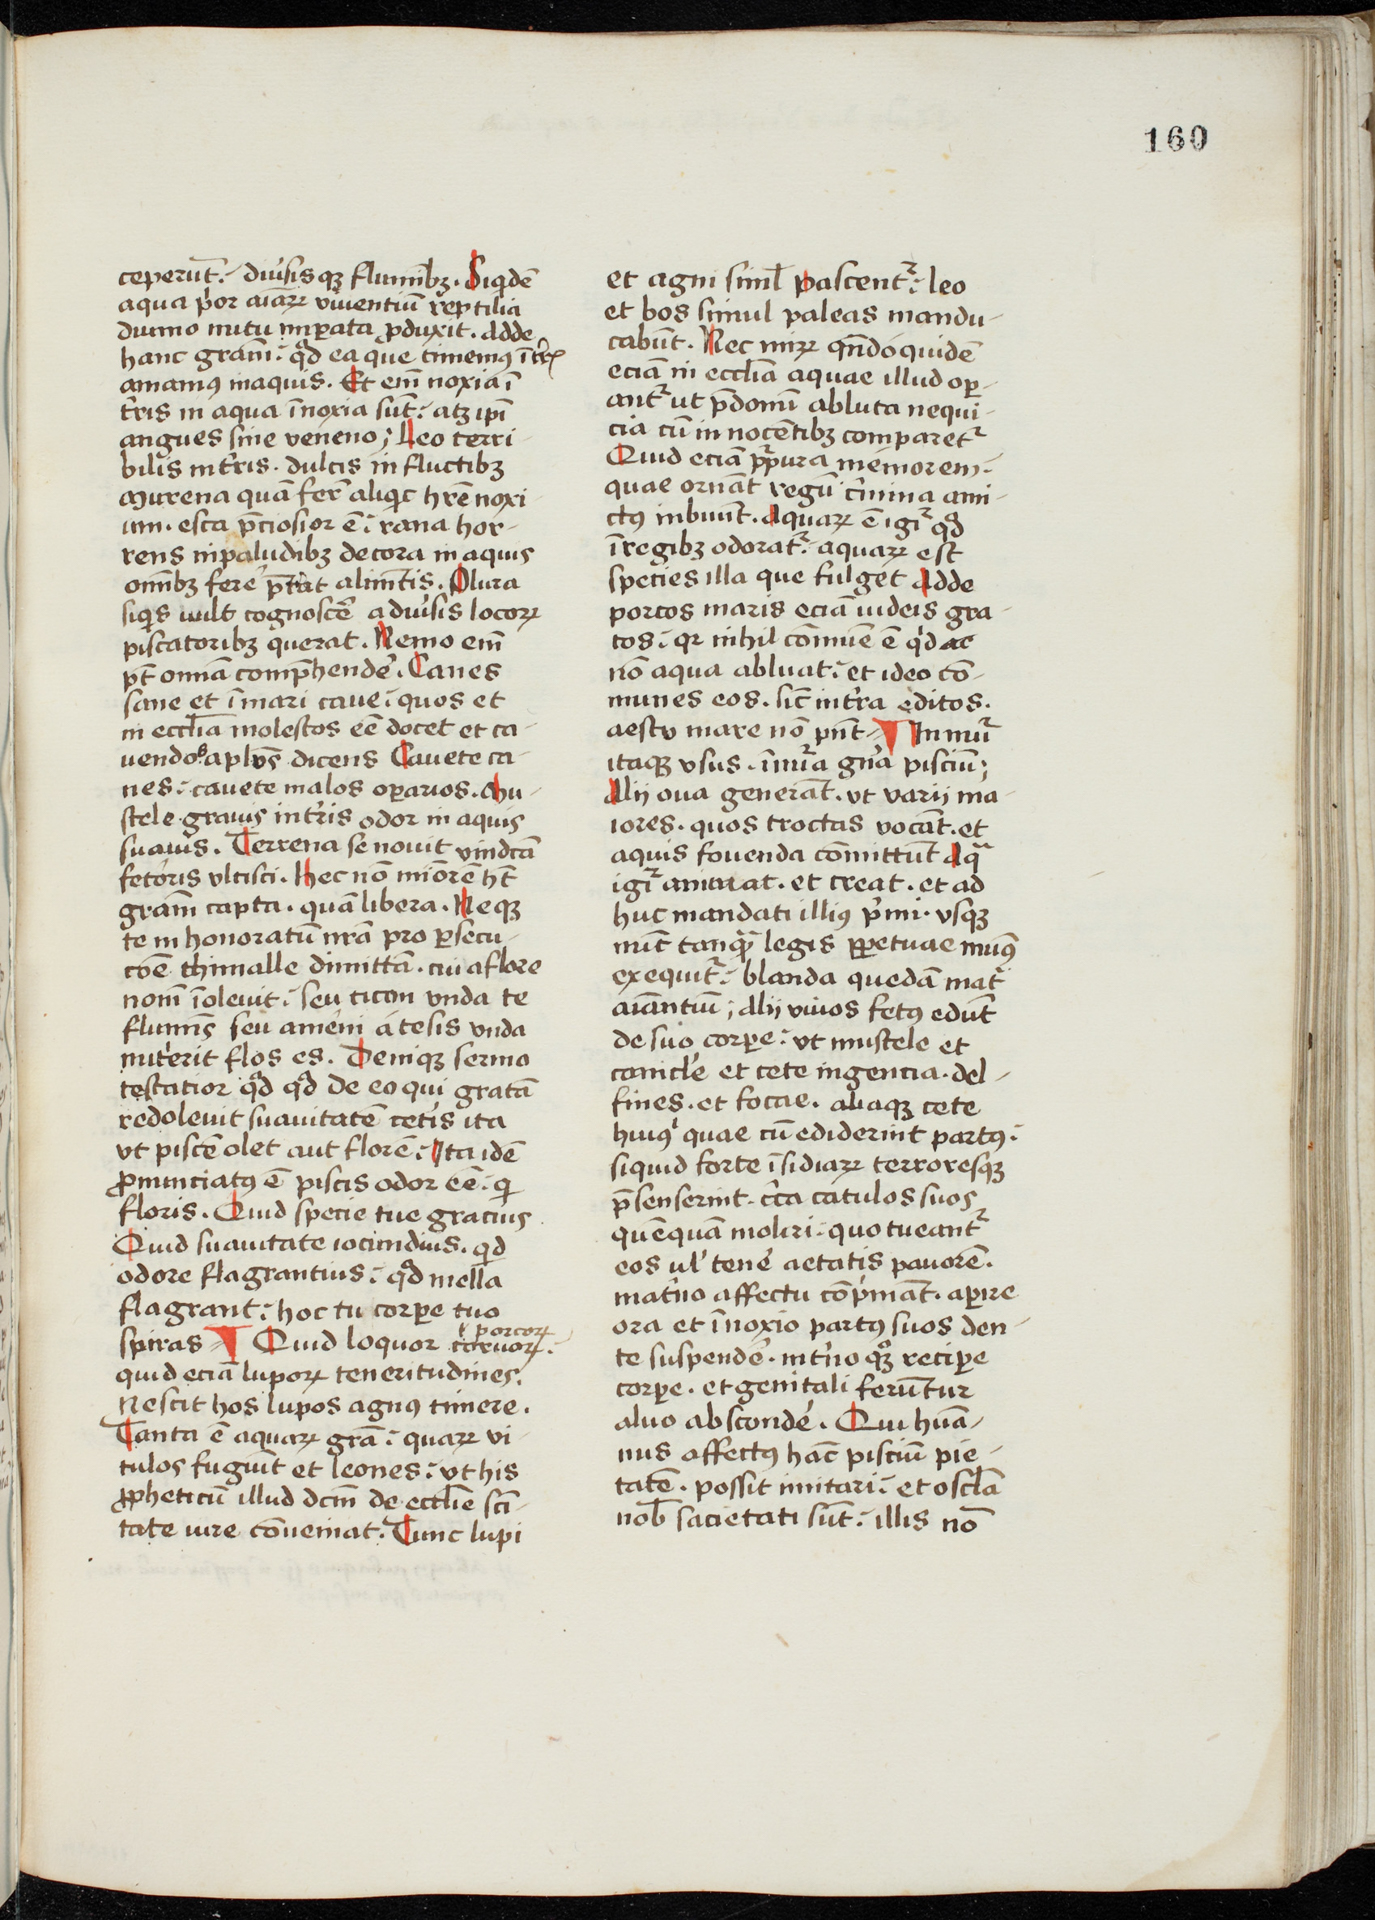 160
ceperūt. diuīsisqꝫ flumībꝫ. Siqͥdē
aqua pͥor aīaꝝ viuentiū reptilia
diuino nutu īmꝑata ꝓduxit. Adde
hanc grām. qͦd ea que timemꝰ ī tr̄ꝭ
amamꝰ in aquis. Et em̄ noxia ī
tr̄ris in aqua īnoxia sūt. atꝫ ip̄i
angues sine veneno; Leo terri-
bilis in tr̄ris. dulcis in fluctibꝫ
Murena quā fer̄t aliqͥd hr̄e noxi-
um. esca p̄ciosior ē. rana hor-
rens in paludibꝫ decora in aquis
om̄ibꝫ fere p̄stat alim̄tis. Plura
siqͥs uult cognosce᷑ a diuīsis locoꝝ
piscatoribꝫ querat. Nemo em̄
pt̄ omnia comp̄hende᷑. Canes
sane et ī mari caue. quos et
in eccl̄ia molestos eē docet et ca-
uendos apl̄us dicens Cauete ca-
nes. cauete malos oꝑarios. Mu-
stele grauis in tr̄ris odor in aquis
suauis. Terrena se nouit vindictā
fetoris vltisci. Hec nō miōrē ht̄
grām capta. quā libera. Neqꝫ
te in honoratū nr̄ā pro ꝑsecu-
cōe thimalle dimittā. cui a flore
nom̄ īoleuit. seu ticin vnda te
flumīs seu ameni atesis vnda
nutͥerit flos es. Deniqꝫ sermo
testatior qͦd qͦd de eo qui gratā
redoleuit suauitatē cetis ita
vt piscē olet aut florē. Ita idē
ꝓnunciatꝰ ē piscis odor eē. qͥ
floris. Quid specie tue gracius
Quid suauitate iocundius. qͥd
odore flagrantius. qͦd mella
flagrant. hoc tu corꝑe tuo
spiras ¶ Quid loquor coruoꝝ.
l porcoꝝ
quid eciā lupoꝝ teneritudines.
Nescit hos lupos agnꝰ timere.
Tanta ē aquaꝝ grā. quaꝝ vi-
tulos fugiūt et leones. vt his
ꝓpheticū illud dcm̄ de eccl̄ie scī-
tate iure cōueniat. Tunc lupi
et agni simł pascentᷣ. leo
et bos simul paleas mandu-
cabūt. Nec miꝝ qn̄doquidē
eciā in eccl̄ia aquae illud oꝑ-
antᷣ ut p̄donū abluta nequi-
cia cū innocētibꝫ comparetᷣ
Quid eciā pᷣpura memorem.
quae ornāt regū cͥmina ami-
ctꝰ inbuūt. Aquaꝝ ē igiᷣ qͦd
ī regibꝫ odoratᷣ. aquaꝝ est
species illa que fulget Adde
porcos maris eciā iudeis gra-
tos. qr nihil cōmūe ē qͦd ac
nō aqua abluat. et ideo cō-
munes eos. sic̄ in tr̄ra editos.
aestu mare nō pn̄t ¶ Inmūᷣ
itaqꝫ vsus. īnūa gn̄a pisciū;
Alij oua generāt. vt varij ma-
iores. quos troctas vocāt. et
aquis fouenda cōmittūt Aqͣ
igiᷣ animat. et creat. et ad-
huc mandati illiꝰ pͥmi. vsqꝫ
nūc tanqͣ̄ legis ꝑpetuae munꝰ
exequitᷣ. blanda quedā mat᷑
aīantiū; Alij viuos fetꝰ edūt
de suo corꝑe. vt mustele et
canicl̄e et cete ingencia. del-
fines. et focae. aliaqꝫ cete
huiꝰ quae cū ediderint partꝰ.
siquid forte īsidiaꝝ terroresqꝫ
p̄senserint. cͥca catulos suos
quēquā moliri. quo tueantᷣ
eos ul᷑ tene᷑ aetatis pauorē.
mat᷑no affectu cōpͥmāt. aꝑire
ora et īnoxio partꝰ suos den-
te suspende᷑. int᷑no qꝫ reciꝑe
corꝑe. et genitali ferūtur
aluo absconde᷑. Qui huā-
nus affectꝰ hāc pisciū pie-
tatē. possit imitari. et oscl̄a
nob̄ sacietati sūt. illis nō